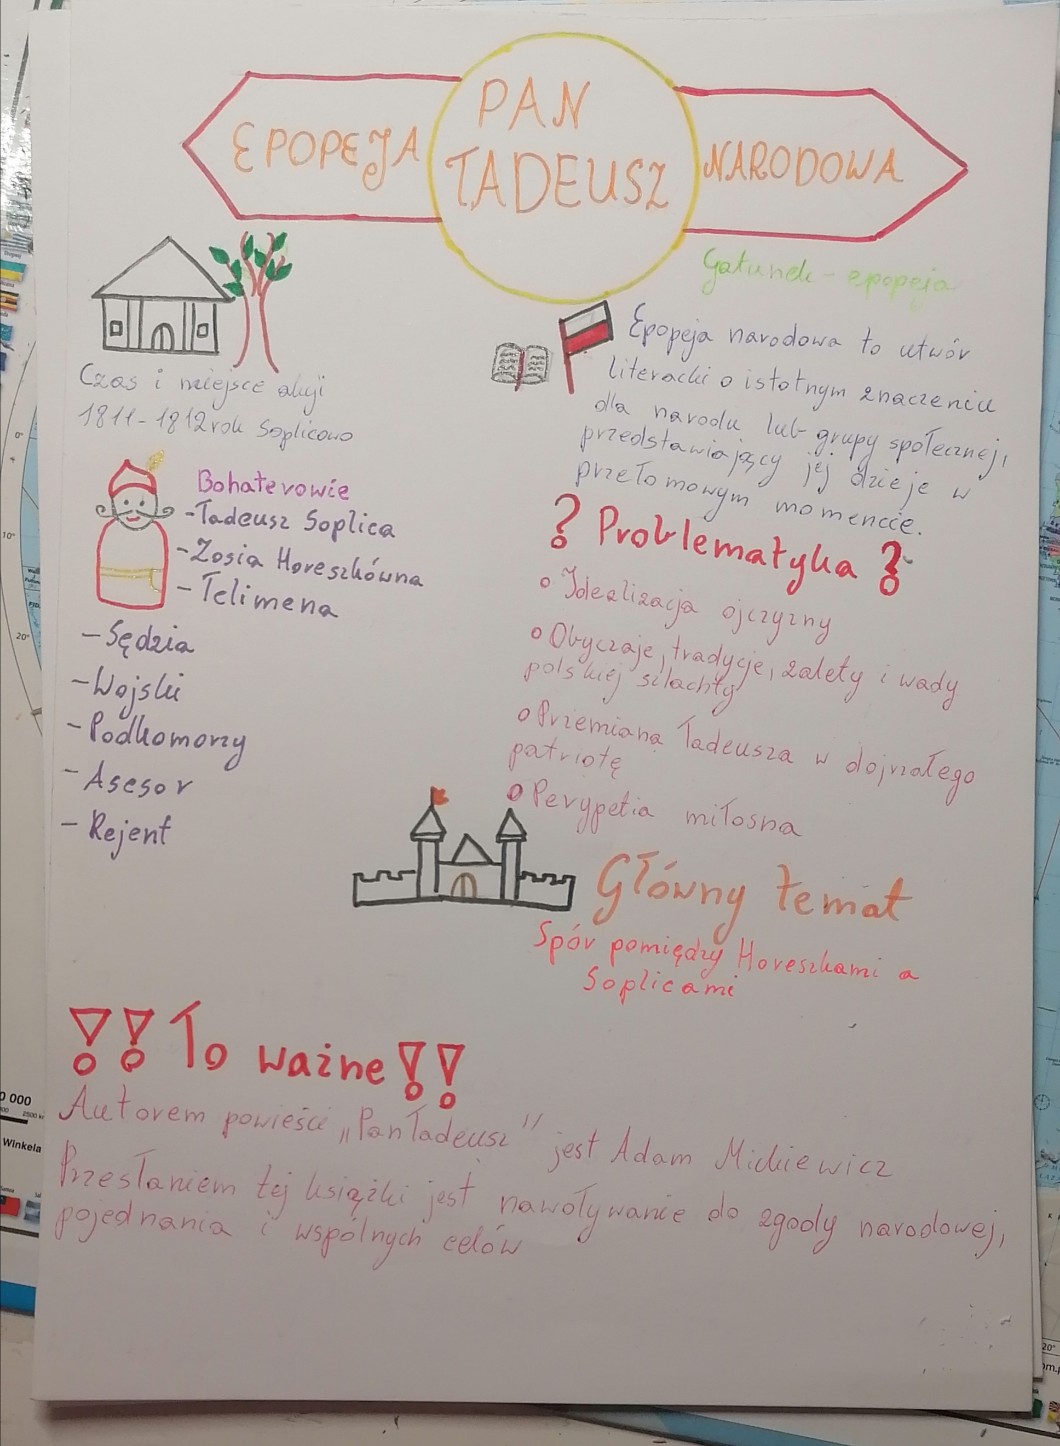 EPOPEJA
PAN
TADEUSZ
NARODOWA
Gatunek - epopeja
Czas i miejsce akcji
1811-1812 rok Soplicowo
Epopeja narodowa to utwór
literacki o istotnym znaczeniu
dla narodu lub grupy społecznej,
przedstawiający jej dzieje w
przełomowym momencie.
Bohaterowie
-Tadeusz Soplica
-Zosia Horeszkówna
-Telimena
-Sędzia
-Wojski
-Podkomorzy
-Asesor
-Rejent
? Problematyka ?
Idealizacja ojczyzny
Obyczaje, tradycje, zalety i wady
polskiej szlachty
Przemiana Tadeusza w dojrzałego
patriotę
Perypetia miłosna
Główny temat
Spór pomiędzy Horeszkami a
Soplicami
!! To ważne !!
Autorem powieści „Pan Tadeusz" jest Adam Mickiewicz
Przesłaniem tej książki jest nawoływanie do zgody narodowej,
pojednania i wspólnych celów
0 000
Winkela
0°
10°
20°
20°